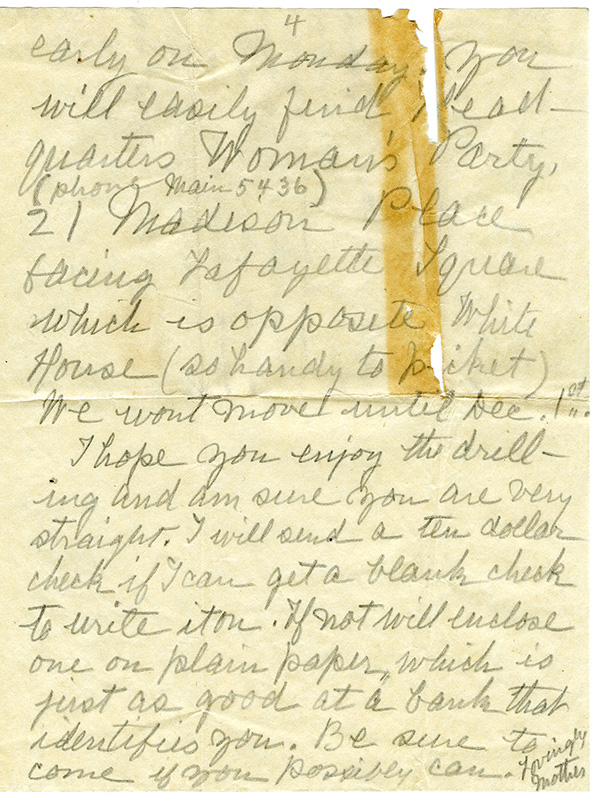 4
early on Monday. You
will easily find Head-
quarters Woman's Party,
(phone Main 5436)
21 Madison Place
facing Lafayette Square
which is opposite White
House (so handy to picket)
We wont move until Dec. 1st.
I hope you enjoy the drill-
ing and am sure you are very
straight. I will send a ten dollar
check if I can get a blank check
to write it on. If not will enclose
one on plain paper, which is
just as good at a bank that
identifies you. Be sure to
come if you possibly can. Lovingly
Mother